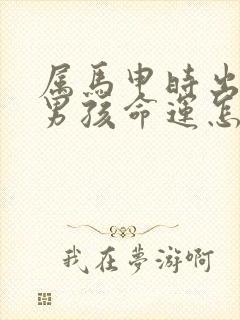 属馬申時出
男孩命運怎
我在夢游啊